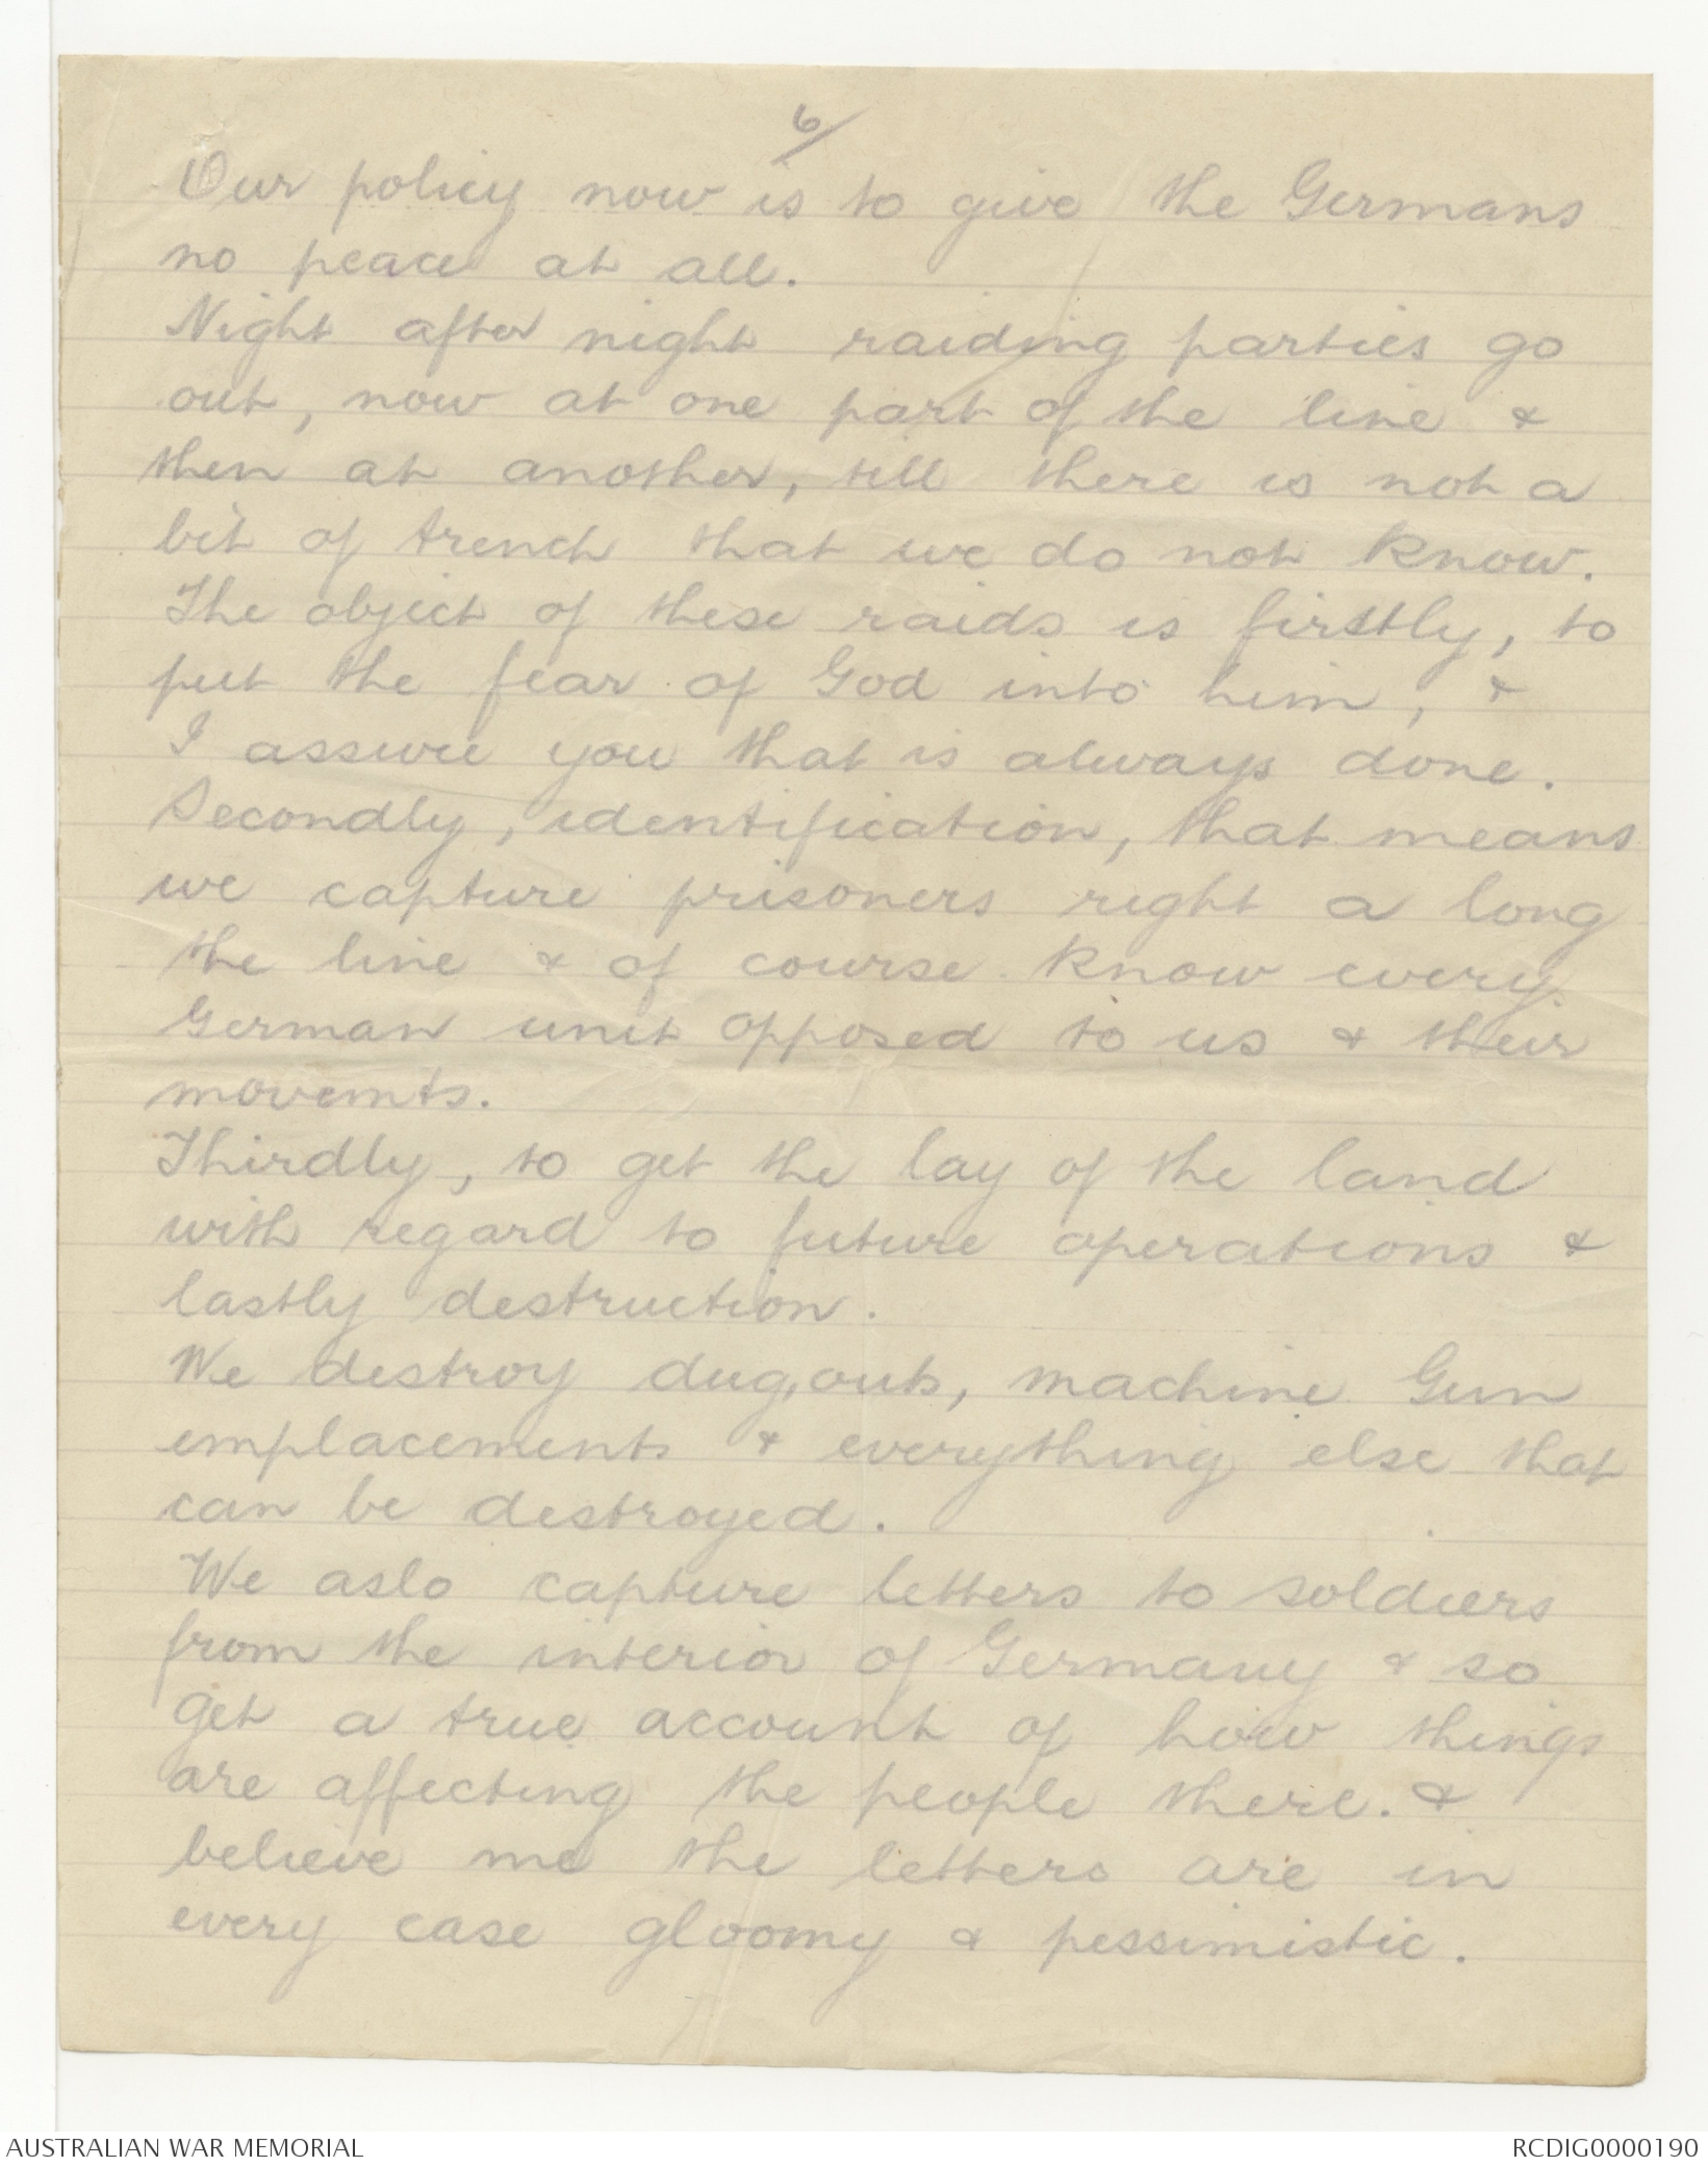 6/
Our policy now is to give the Germans
no peace at all.
Night after night raiding parties go
out, now at one part of the line &
then at another, till there is not a
bit of trench that we do not know.
The object of these raids is firstly, to
put the fear of God into him, &
I assure you that is always done.
Secondly, identification, that means
we capture prisoners right a long
the line & of course know every
German unit opposed to us & their
movemts.
Thirdly, to get the lay of the land
with regard to future operations &
lastly destruction.
We destroy dug,outs, machine Gun
emplacements & everything else that
can be destroyed.
We aslo capture letters to soldiers
from the interior of Germany & so
get a true account of how things
are affecting the people there. &
believe me the letters are in
every case gloomy & pessimistic.
AUSTRALIAN WAR MEMORIAL
RCDIG0000190